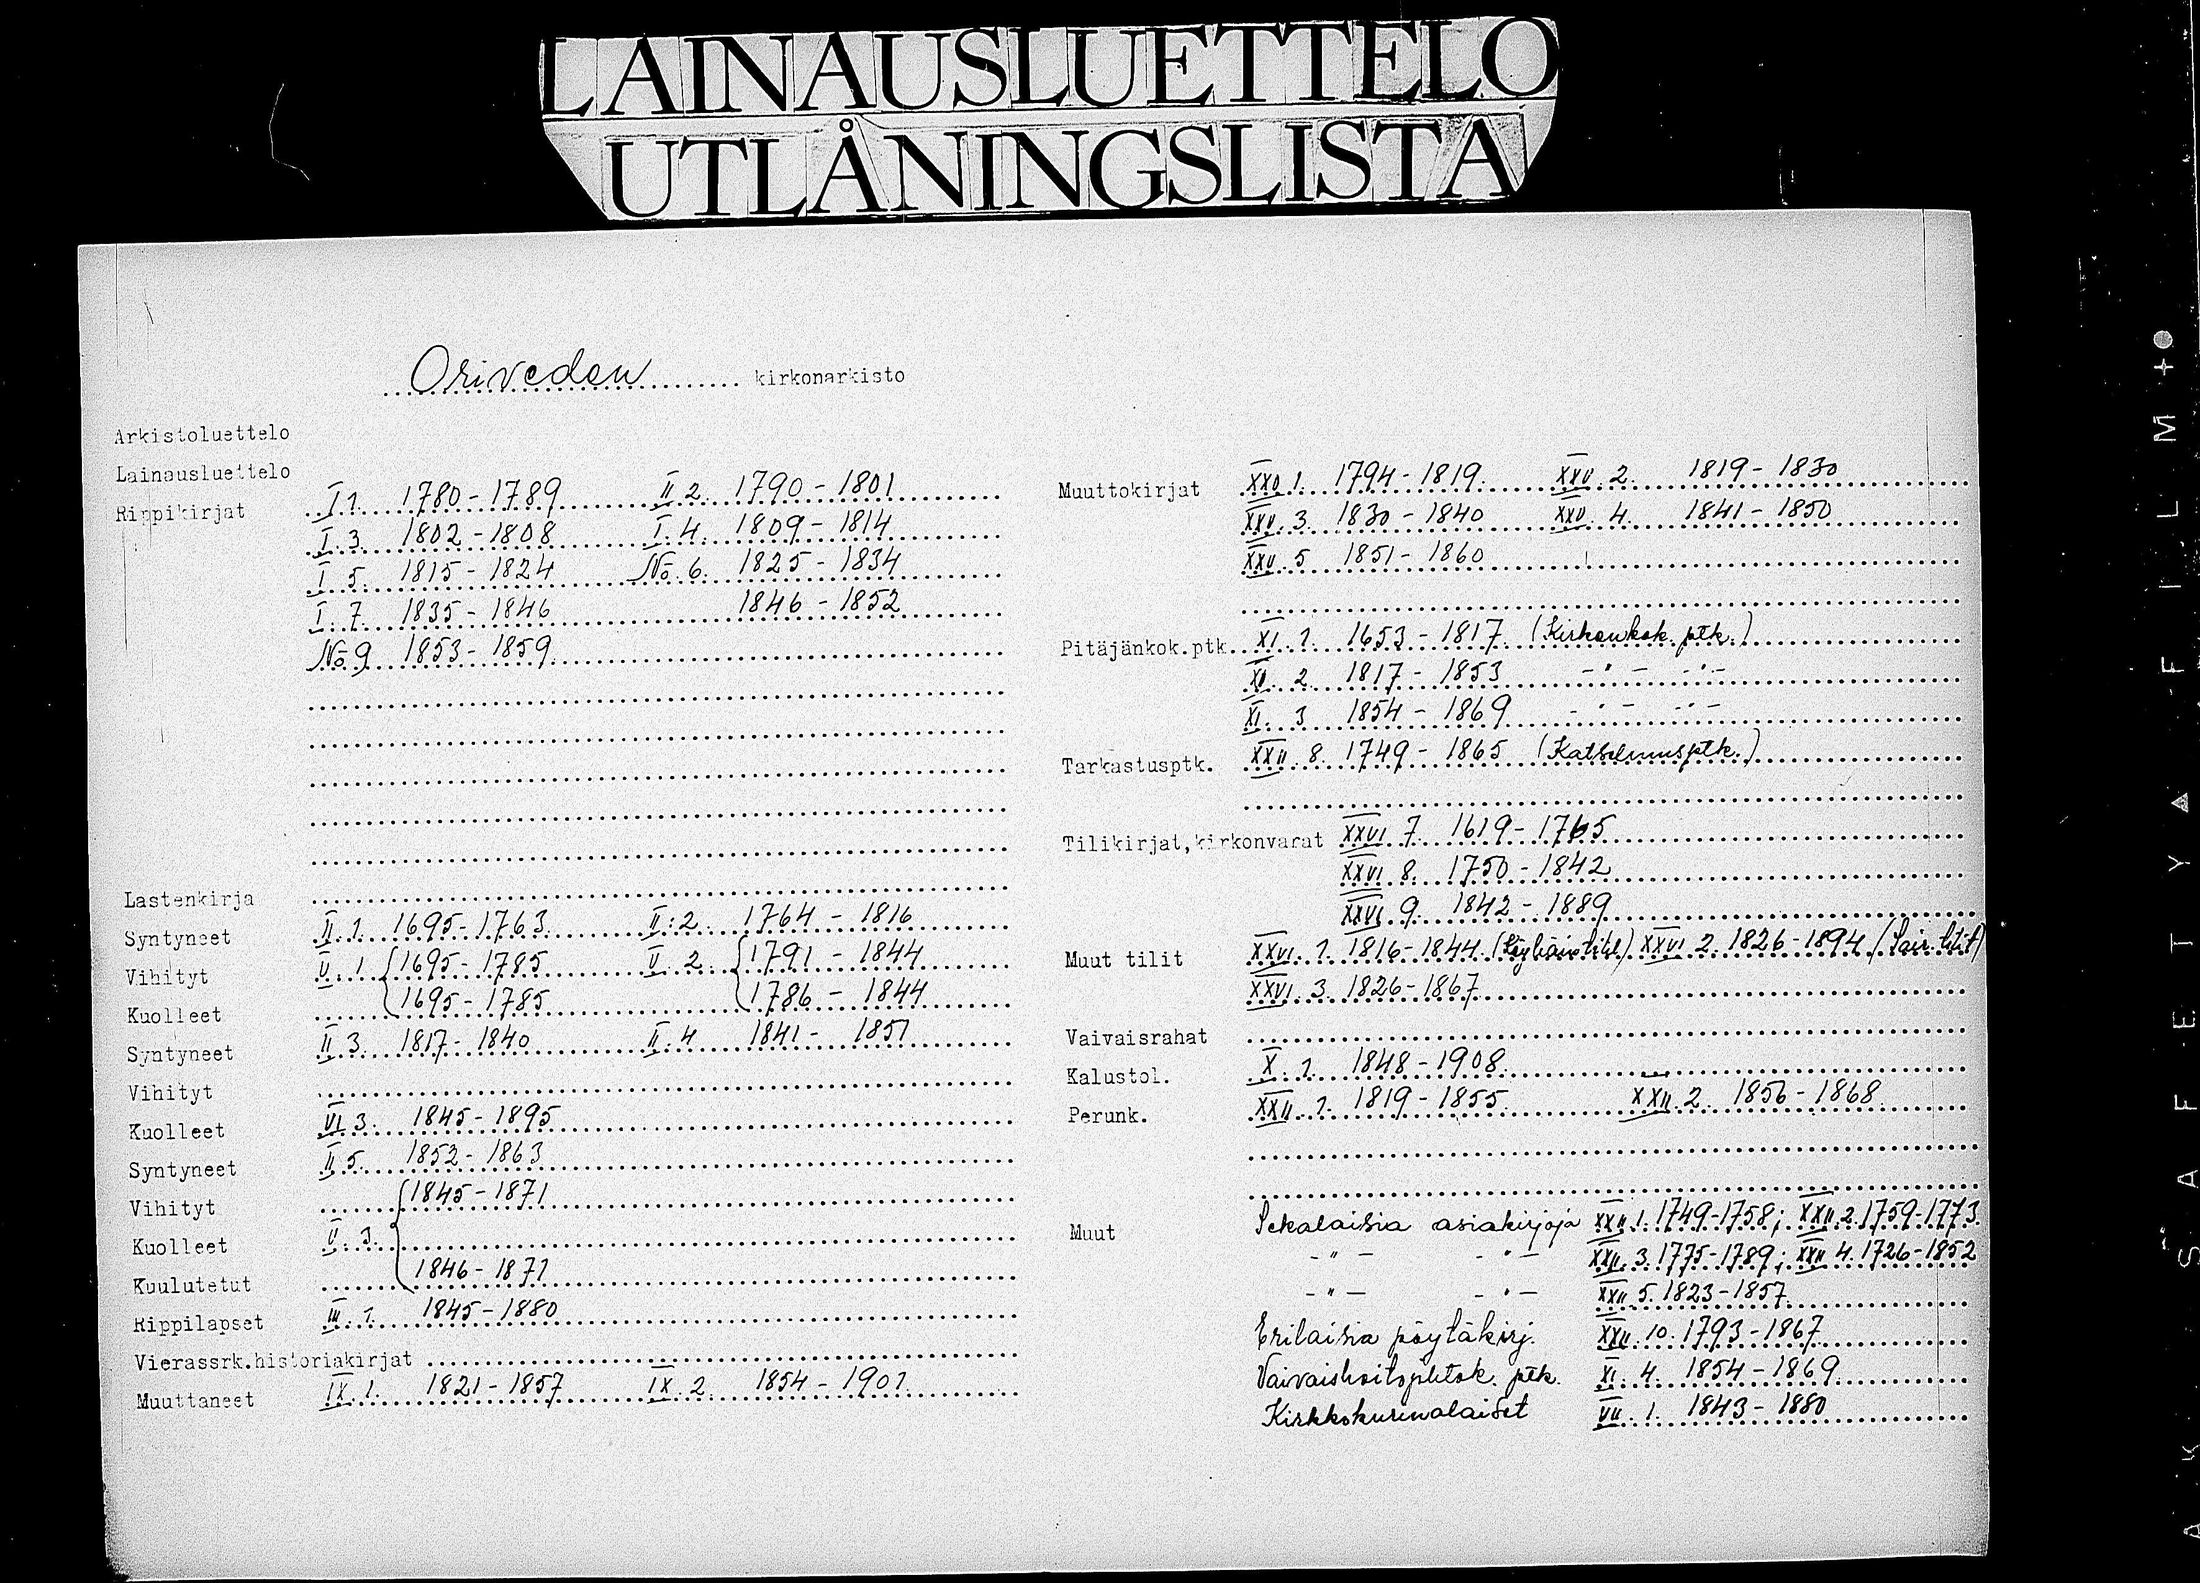 LAINAUSLUETTELO
UTLÅNINGSLISTA
Oriveden kirkonarkisto
Arkistoluettelo
Lainausluettelo
Rippikirjat I 1. 1780-1789 II 2. 1790-1801
I. 3. 1802-1808 I. 4. 1809-1814
I 5. 1815-1824 No. 6. 1825-1834
I. 7. 1835-1846 1846-1852
No 9. 1853-1859
Lastenkirja
Syntyneet II. 1. 1695-1763 II. 2. 1764-1816
Vihityt V. 1. 1695-1785 V. 2. 1791-1844
Kuolleet 1695-1785 1786-1844
Syntyneet II 3. 1817-1840 II. 4 1841-1851
Vihityt
Kuolleet VI 3. 1845-1895
Syntyneet II 5. 1852-1863
Vihityt 1845-1871
Kuolleet V. 3.
Kuulutetut 1846-1871
Rippilapset III. 1. 1845-1880
Vierassrk.historiakirjat
Muuttaneet IX. 1. 1821-1857 IX. 2. 1854-1901
Muuttokirjat XXV 1. 1794-1819. XXV. 2. 1819-1830
XXV. 3. 1830-1840 XXV. 4. 1841-1850
XXV. 5 1851-1860
Pitäjänkok.ptk. XI. 1. 1653-1817. (Kirkonkok. ptk.)
XI. 2. 1817-1853 -"- -"-
XI. 3 1854-1869 -"- -"-
Tarkastusptk. XXII. 8. 1749-1865 (Katselmusptk.)
Tilikirjat,kirkonvarat XXVI 7. 1619-1765
XXVI 8. 1750-1842
XXVI. 9. 1842-1889
Muut tilit XXVI. 1. 1816-1844. XXVI 2. 1826-1894 (Sair. tilit)
XXVI. 3. 1826-1867
Vaivaisrahat
Kalustol. X. 1. 1848-1908.
Perunk. XXII. 1. 1819-1855. XXII. 2. 1856-1868.
Muut Sekalaisia asiakirjoja XXII. 1. 1749-1758; XXII 2. 1759-1773.
-"- -"- XXII. 3. 1775-1789; XXII 4. 1726-1852
-"- -"- XXII 5. 1823-1857.
Erilaisia pöytäkirj. XXII. 10. 1793-1867.
ptk. XI. 4. 1854-1869.
Kirkkokurinalaiset VII. 1. 1843-1880
AK SAFETY FILM